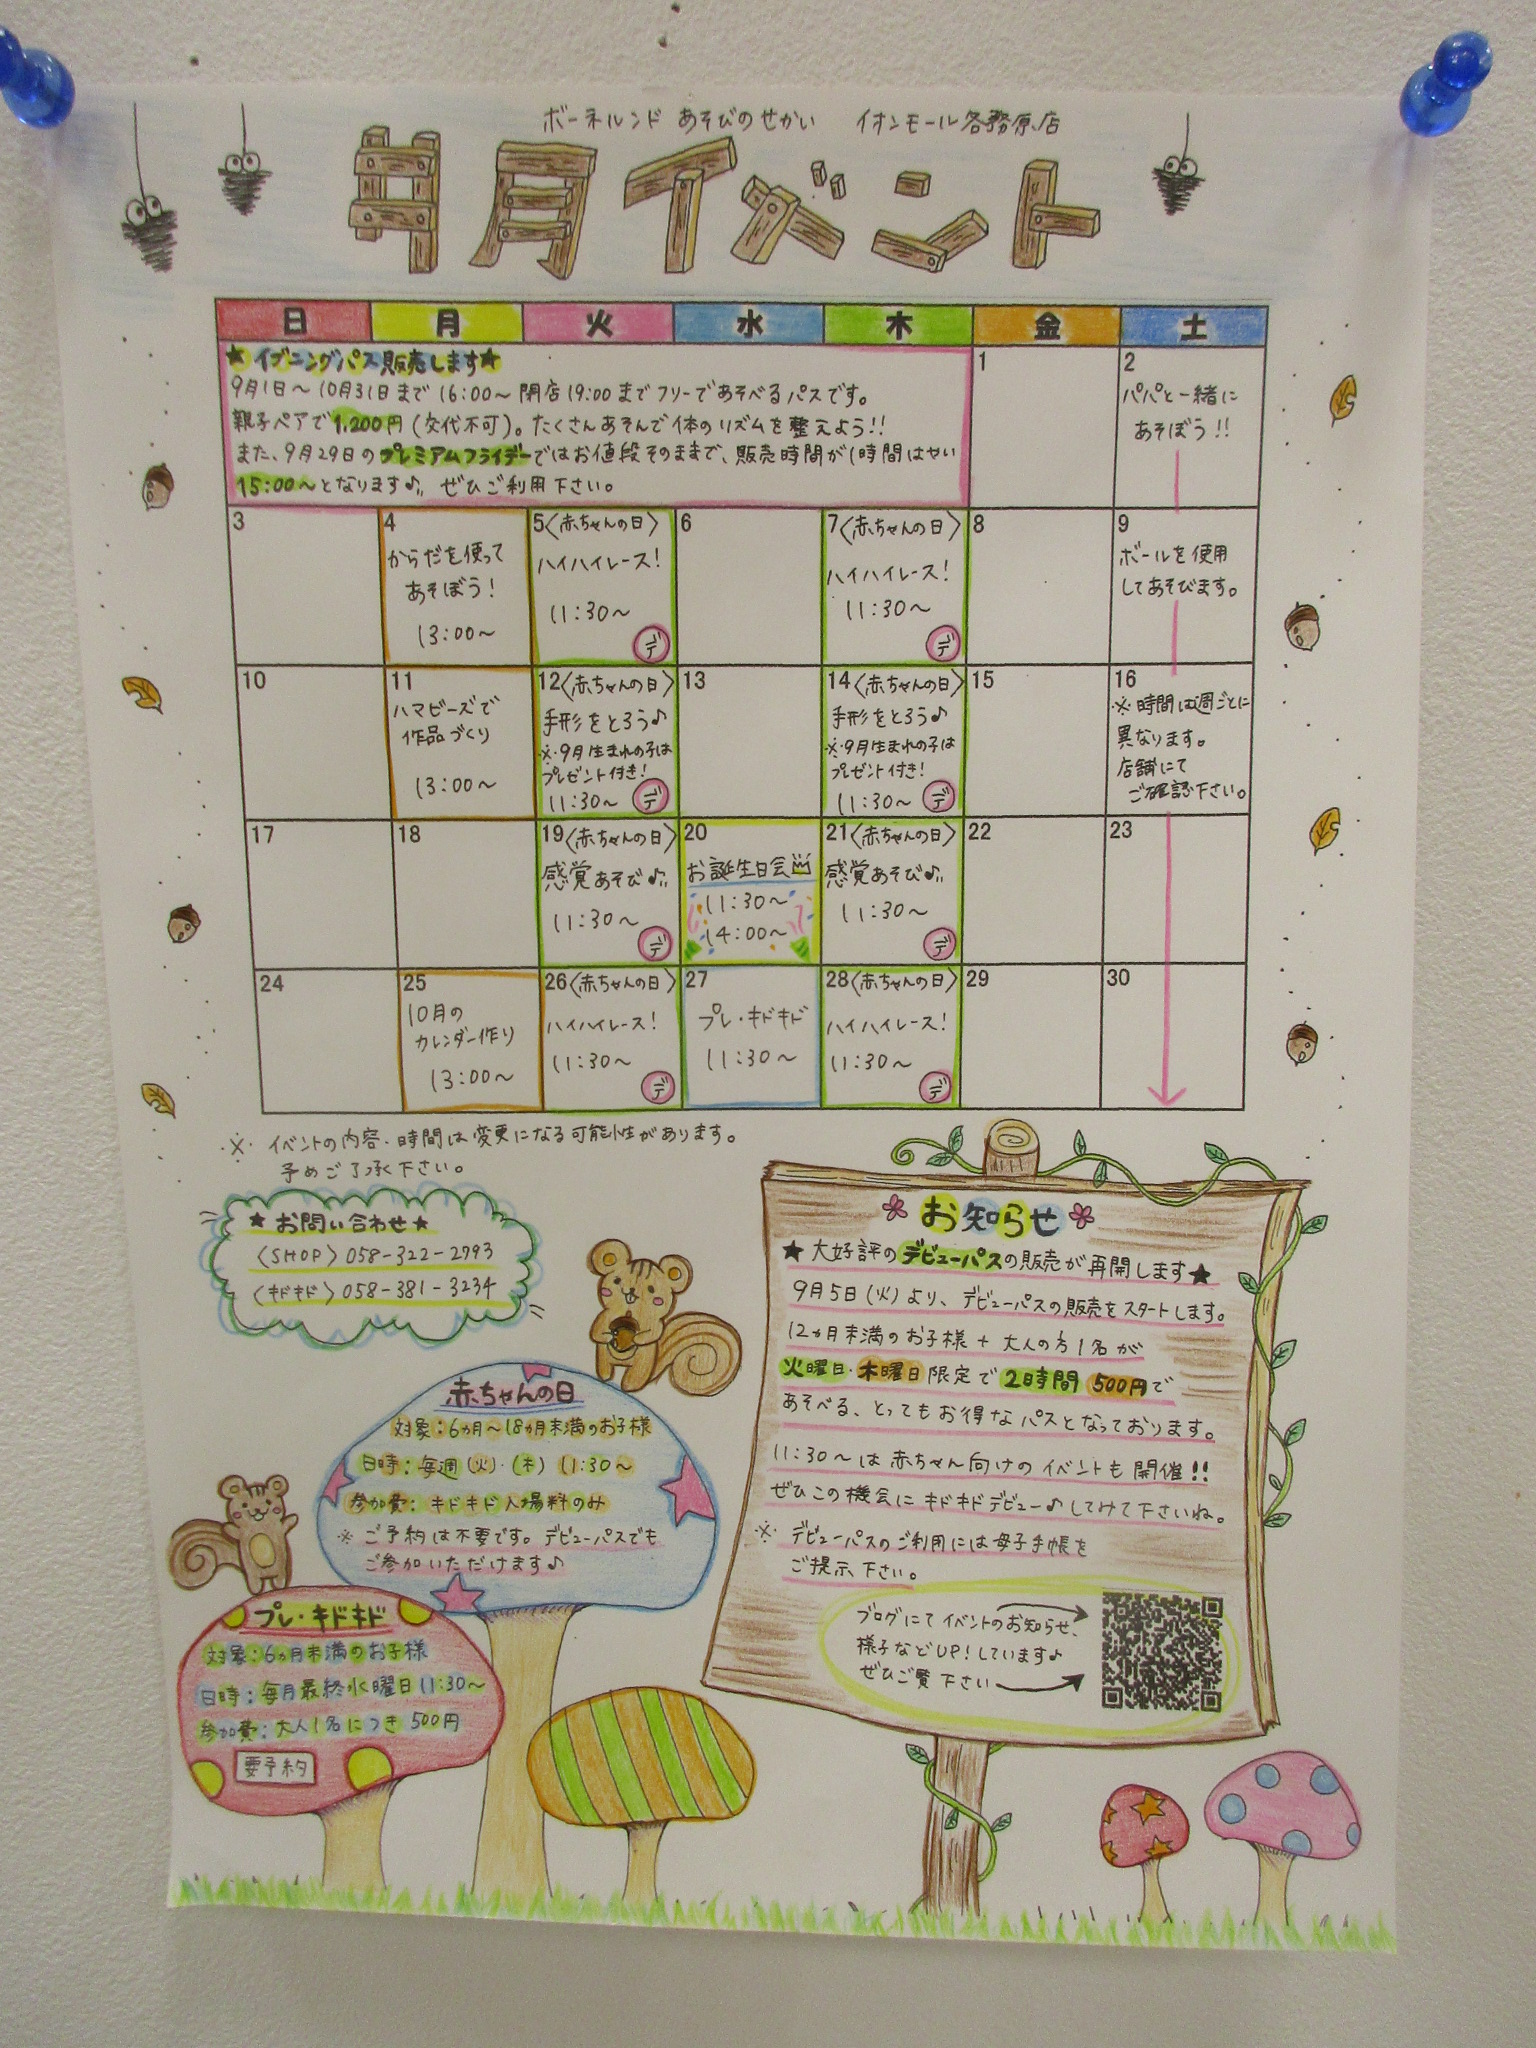 ボーネルンド あそびのせかい イオンモール各務原店
9月イベント
日 月 火 水 木 金 土
★イブニングパス販売します★
9月1日～10月31日まで16:00～閉店19:00までフリーであそべるパスです。
親子ペアで1,200円(交代不可)。たくさんあそんで体のリズムを整えよう!!
また、9月29日のプレミアムフライデーではお値段そのままで、販売時間が1時間はやい
15:00～となります♪ ぜひご利用下さい。
1
2
パパと一緒に
あそぼう!!
3
4
からだを使って
あそぼう!
13:00～
5〈赤ちゃんの日〉
ハイハイレース!
11:30～
デ
6
7〈赤ちゃんの日〉
ハイハイレース!
11:30～
デ
8
9
ボールを使用
してあそびます。
10
11
ハマビーズで
作品づくり
13:00～
12〈赤ちゃんの日〉
手形をとろう♪
※9月生まれの子は
プレゼント付き!
11:30～
デ
13
14〈赤ちゃんの日〉
手形をとろう♪
※9月生まれの子は
プレゼント付き!
11:30～
デ
15
16
※時間は週ごとに
異なります。
店舗にて
ご確認下さい。
17
18
19〈赤ちゃんの日〉
感覚あそび♪
11:30～
デ
20
お誕生日会
11:30～
14:00～
21〈赤ちゃんの日〉
感覚あそび♪
11:30～
デ
22
23
24
25
10月の
カレンダー作り
13:00～
26〈赤ちゃんの日〉
ハイハイレース!
11:30～
デ
27
プレ・キドキド
11:30～
28〈赤ちゃんの日〉
ハイハイレース!
11:30～
デ
29
30
※イベントの内容・時間は変更になる可能性があります。
予めご了承下さい。
★お問い合わせ★
〈SHOP〉058-322-2793
〈キドキド〉058-381-3234
赤ちゃんの日
対象:6ヵ月～18ヵ月未満のお子様
日時:毎週(火)・(木) 11:30～
参加費:キドキド入場料のみ
※ご予約は不要です。デビューパスでも
ご参加いただけます♪
プレ・キドキド
対象:6ヵ月未満のお子様
日時:毎月最終水曜日11:30～
参加費:大人1名につき500円
要予約
お知らせ
★大好評のデビューパスの販売が再開します★
9月5日(火)より、デビューパスの販売をスタートします。
12ヵ月未満のお子様+大人の方1名が
火曜日・木曜日限定で2時間500円で
あそべる、とってもお得なパスとなっております。
11:30～は赤ちゃん向けのイベントも開催!!
ぜひこの機会にキドキドデビュー♪してみて下さいね。
※デビューパスのご利用には母子手帳を
ご提示下さい。
ブログにてイベントのお知らせ、
様子などUP!しています♪
ぜひご覧下さい